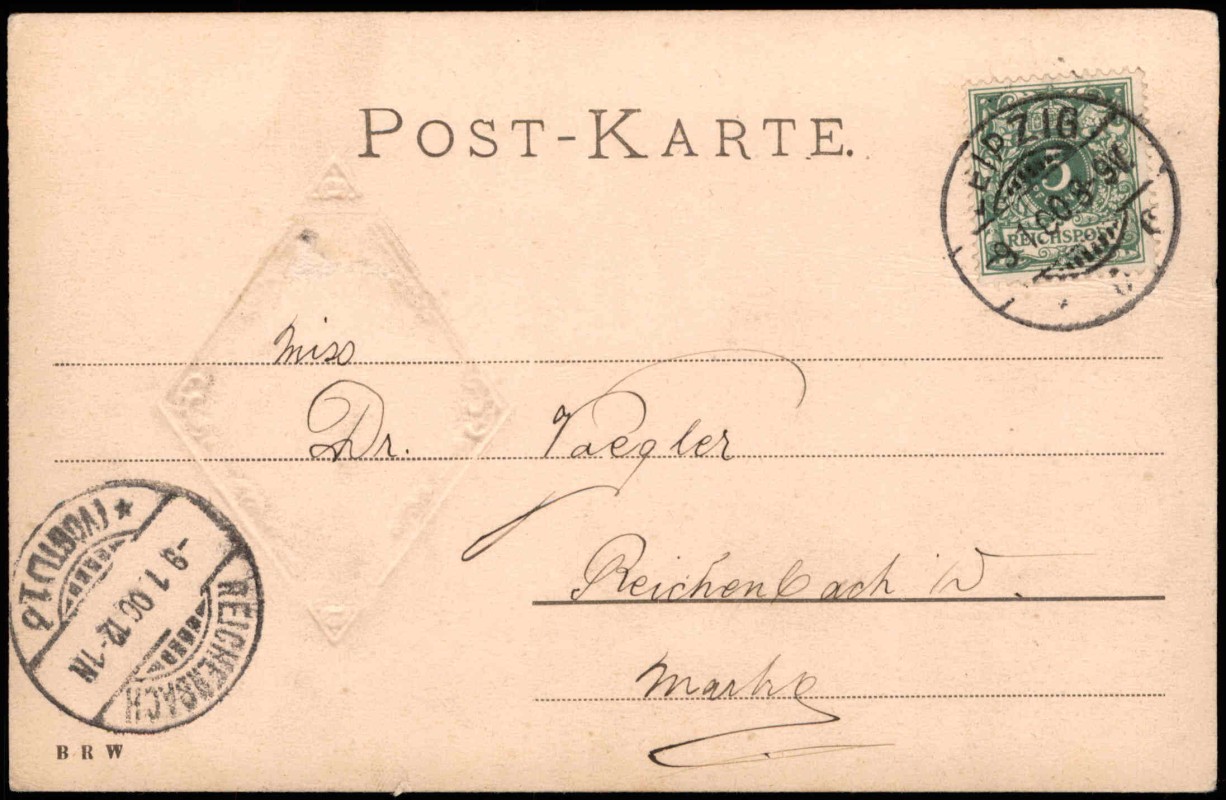 POST-KARTE.
LEIPZIG
-9.1.00.8-9V.
5
REICHSPOST
Miss
Dr. Vaegler
Reichenbach i/V.
Markt
REICHENBACH
(VOGTL) 1 b
-9 1 00 12-1N
B R W